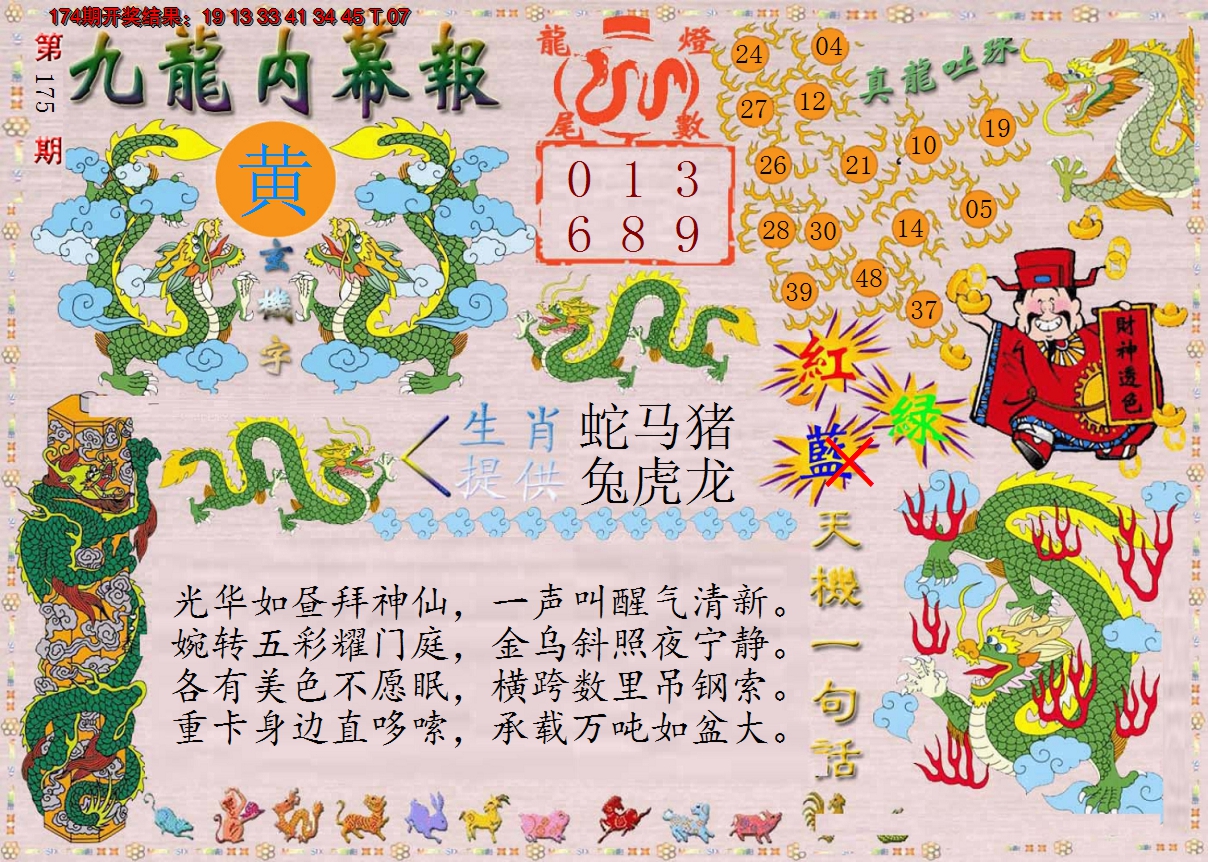 174期开奖结果：19 13 33 41 34 45 T 07
第175期
九龍内幕報
黄
玄機字
龍燈
尾數
0 1 3
6 8 9
真龍吐珠
24 04
27 12
10 19
26 21
28 30 14 05
39 48 37
財神透色
紅
綠
藍
生肖 蛇马猪
提供 兔虎龙
天機一句話
光华如昼拜神仙，一声叫醒气清新。
婉转五彩耀门庭，金乌斜照夜宁静。
各有美色不愿眠，横跨数里吊钢索。
重卡身边直哆嗦，承载万吨如盆大。